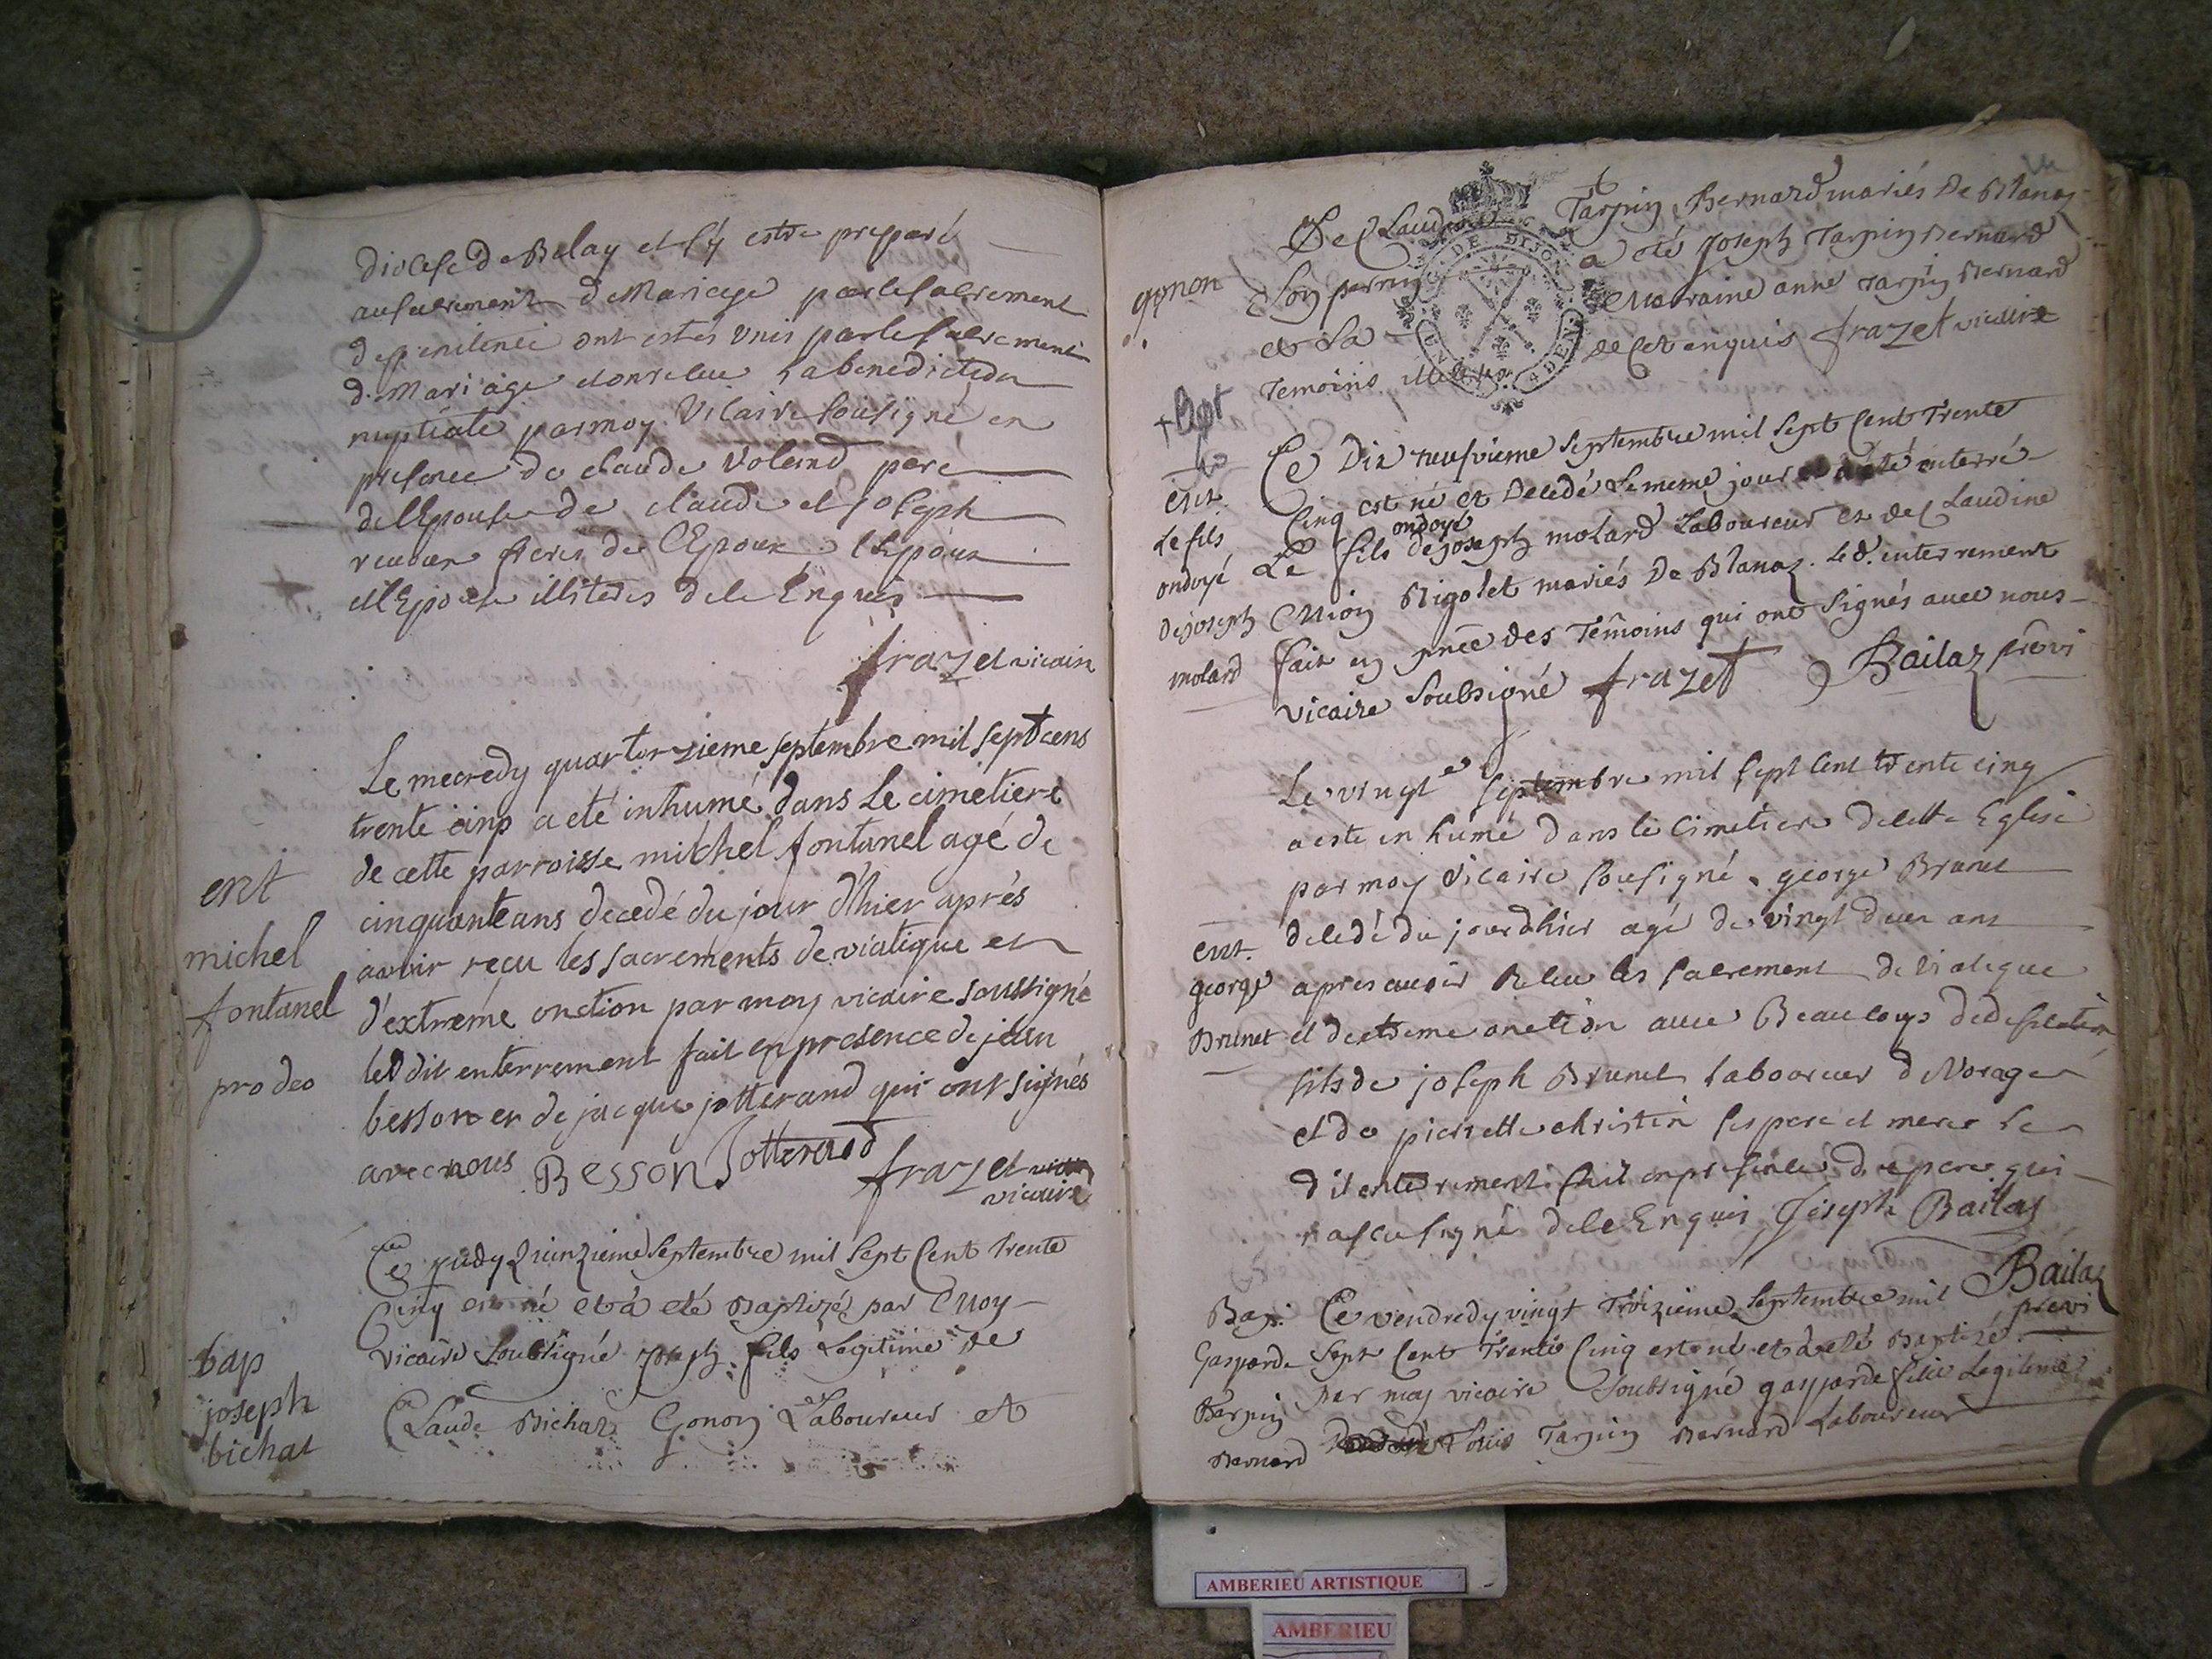 diocese de Belay et sy estre preparé
au sacrement de Mariage par le sacrement
de penitence ont estés unis par le sacrement
de Mariage et ont receu la benediction
nuptiale par moy Vicaire sousigné en
presence de claude Voland pere
de l'Epouse de claude et joseph
freres de l'Epoux l'Epoux
et l'Epouse illiteres de ce Enquis
frazet vicaire
Le mecredy quartorzieme septembre mil sept cens
trente cinq a eté inhumé dans le cimetiere
de cette parroisse michel fontanel agé de
cinquante ans decedé du jour d'hier après
avoir reçu les sacrements de viatique et
d'extrême onction par moy vicaire soussigné
ledit enterrement fait en presence de jean
besson et de jacque jotterand qui ont signés
avec nous Besson Jotterand
frazet
vicaire
ent
michel
fontanel
pro deo
Ce judy quinzieme Septembre mil sept Cent trente
Cinq est né et a eté Baptizé par Moy
vicaire Soubsigné joseph fils Legitime de
Claude Bichat Gonon Laboureur et
bap
joseph
bichat
gonon
De Claudine Tarpin Bernard mariés De Blanaz
Son parrin a eté joseph Tarpin Bernard
et Sa Marraine anne Tarpin Bernard
Temoins de Cet enquis frazet vicaire
+ Bpt
Ce Dix neufvieme Septembre mil Sept Cent Trente
Cinq est né et Decedé Le meme jour et a eté enterré
ondoyé
Le fils de joseph molard Laboureur et de Claudine
Mion Rigolet mariés De Blanaz. Led. enterrement
fait en pnce des Temoins qui ont Signés avec nous
vicaire Soubsigné frazet Bailaz previ
ent
Le fils
ondoyé
de joseph
molard
Le vingt e Septembre mil sept cent trente cinq
a este inhumé dans le cimetiere de cette Eglise
par moy Vicaire sousigné george Brunet
decedé du jour dhier agé de vingt deux ans
apres avoir Receu les sacrement de Viatique
et dextreme onction avec Beaucoup de
fils de joseph Brunet laboureur de Vorage
et de pierrette christin ses pere et mere le
dit enterrement fait en presence du pere qui
na sceu signé de ce Enquis Joseph Bailaz
Bailaz
previ
ent.
george
Brunet
Ce vendredy vingt Troizieme Septembre mil
Sept Cent Trente Cinq est né et a eté Baptizé
par moy vicaire Soubsigné gasparde fille Legitime
Louis Tarpin Bernard Laboureur
Bap.
Gasparde
Tarpin
Bernard
DE DIJON
AMBERIEU ARTISTIQUE
AMBERIEU